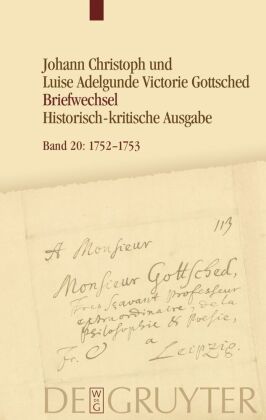 Johann Christoph und
Luise Adelgunde Victorie Gottsched
Briefwechsel
Historisch-kritische Ausgabe
Band 20: 1752–1753
113
A Monsieur
Monsieur Gottsched,
Tres Scavant Professeur
extraordinaire, de la
Philosophie & Poësie,
Fr. a
Leipzig.
DE GRUYTER
W
DE
G